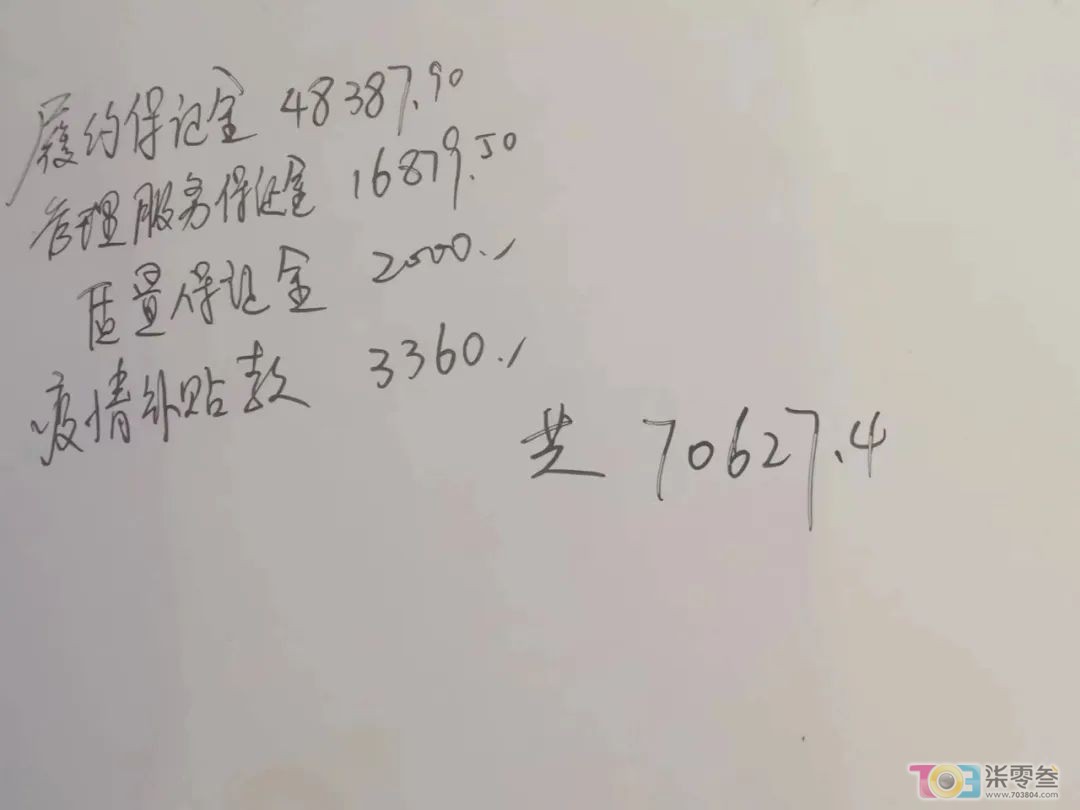 履约保证金 48387.90
管理服务保证金 16879.50
质量保证金 2000.-
疫情补贴款 3360.-
共 70627.4
703 柒零叁
www.703804.com